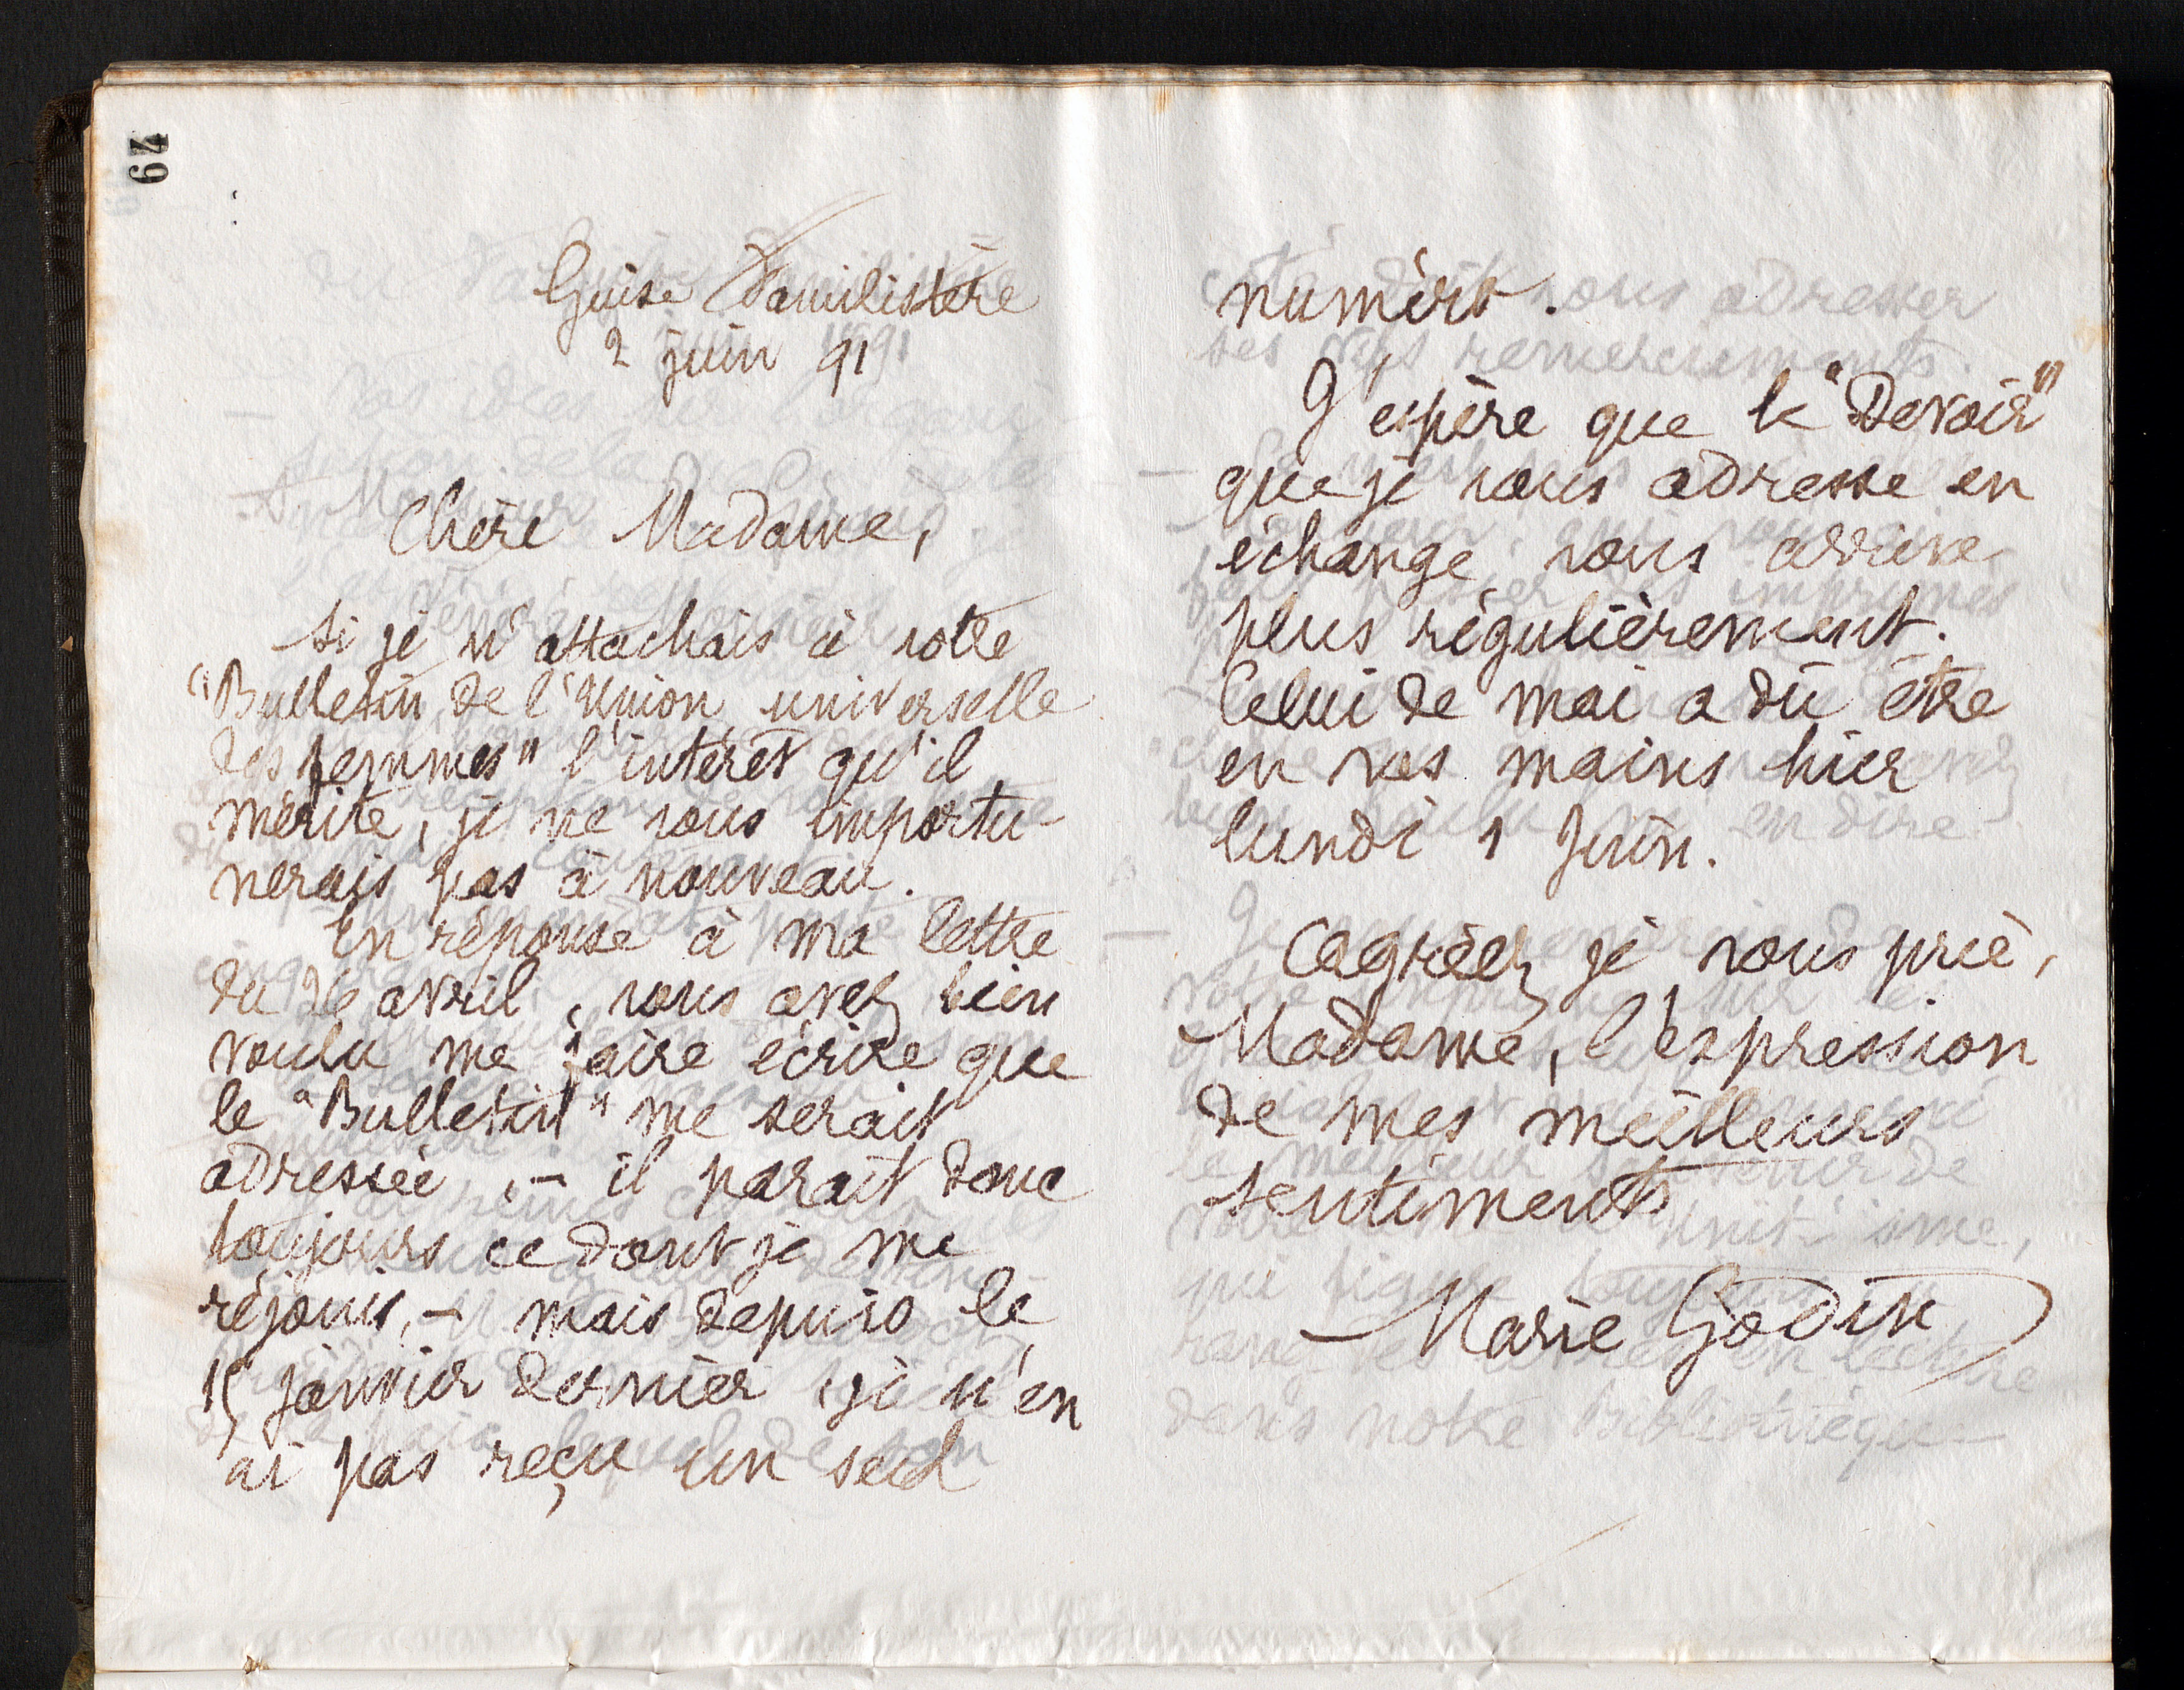 67
Guise Familistère
2 juin 91
Chère Madame,
Si je n'attachais à votre
"Bulletin de l'Union universelle
des femmes" l'intérêt qu'il
mérite, je ne vous importu-
nerais pas à nouveau.
En réponse à ma lettre
du 26 avril, vous avez bien
voulu me faire écrire que
le "Bulletin" me serait
adressée, - il parait donc
toujours ce dont je me
réjouis, - mais depuis le
15 janvier dernier, je n'en
ai pas reçu un seul
numéro.
J'espère que le "Devoir"
que je vous adresse en
échange vous arrive
plus régulièrement.
Celui de mai a dû être
en vos mains hier
lundi 1 Juin.
Agréez je vous prie,
Madame, l'expression
de mes meilleurs
sentiments
Marie Godin